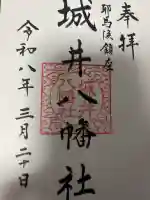 奉拝
耶馬渓鎮座
城井八幡社
令和八年三月二十日